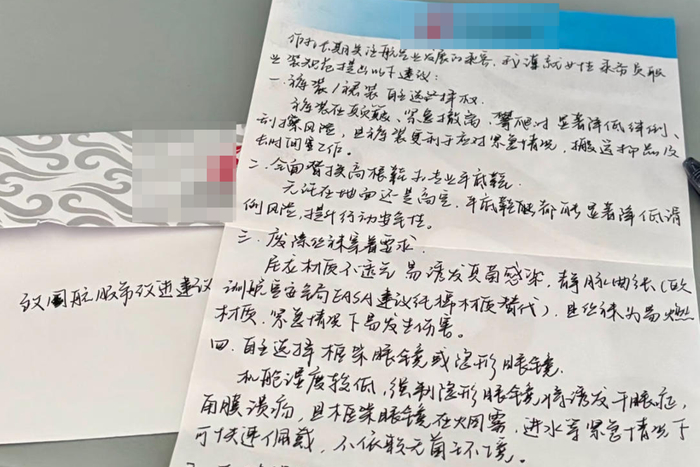 致国航服饰改进建议
作为长期关注航空业发展的乘客，我谨就女性乘务员职
业装规范提出以下建议：
一.裤装/裙装自主选择权.
裤装在颠簸、紧急撤离、攀爬时显著降低绊倒、
刮擦风险，且裤装更利于应对紧急情况，搬运物品及
长时间工作。
二.全面替换高根鞋为专业平底鞋.
无论在地面还是高空，平底鞋都能显著降低滑
倒风险，提升行动安全性。
三.废除丝袜穿着要求.
尼龙材质不透气易诱发真菌感染，静脉曲张(欧
洲航空安全局EASA建议纯棉材质替代)，且丝袜为易燃
材质，紧急情况下易发生伤害。
四.自主选择框架眼镜或隐形眼镜.
机舱湿度较低，强制隐形眼镜将诱发干眼症，
角膜溃疡，且框架眼镜在火烟雾，进水等紧急情况下
可快速佩戴，不依赖无菌环境。